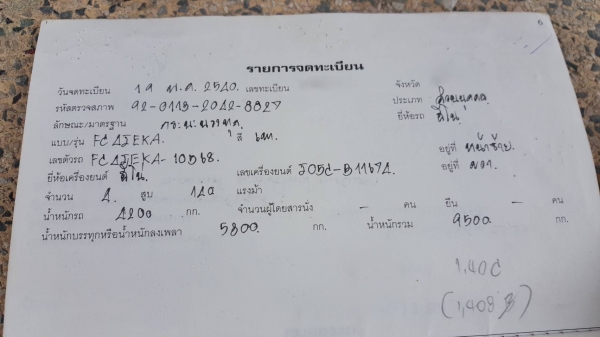 6
รายการจดทะเบียน
วันจดทะเบียน 19 พ.ค. 2540 เลขทะเบียน จังหวัด
รหัสตรวจสภาพ 92-0113-2042-8827 ประเภท ส่วนบุคคล
ลักษณะ/มาตรฐาน กระบะบรรทุก ยี่ห้อรถ ฮีโน่
แบบ/รุ่น FC4JEKA. สี เทา
เลขตัวรถ FC4JEKA-10568 อยู่ที่ หน้าซ้าย
ยี่ห้อเครื่องยนต์ ฮีโน่ เลขเครื่องยนต์ J05C-B11674 อยู่ที่ ขวา
จำนวน 4 สูบ 140 แรงม้า
น้ำหนักรถ 4200 กก. จำนวนผู้โดยสารนั่ง - คน ยืน - คน
น้ำหนักบรรทุกหรือน้ำหนักลงเพลา 5300 กก. น้ำหนักรวม 9500 กก.